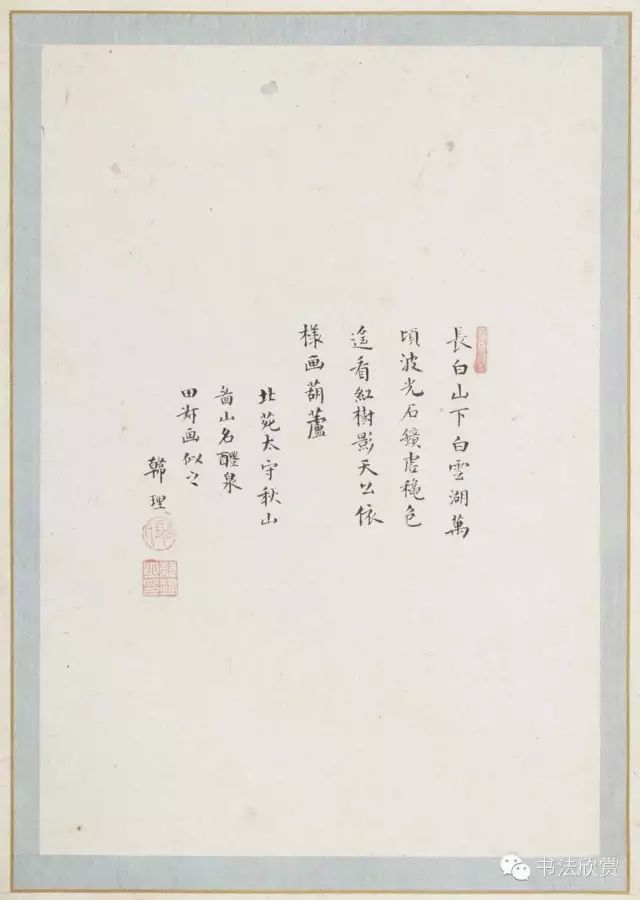 長白山下白雲湖萬
頃波光石鏡虛穐色
遙看紅樹影天公依
樣画葫蘆
北苑太守秋山
啚山名醴泉
田 画似之
理
书法欣赏